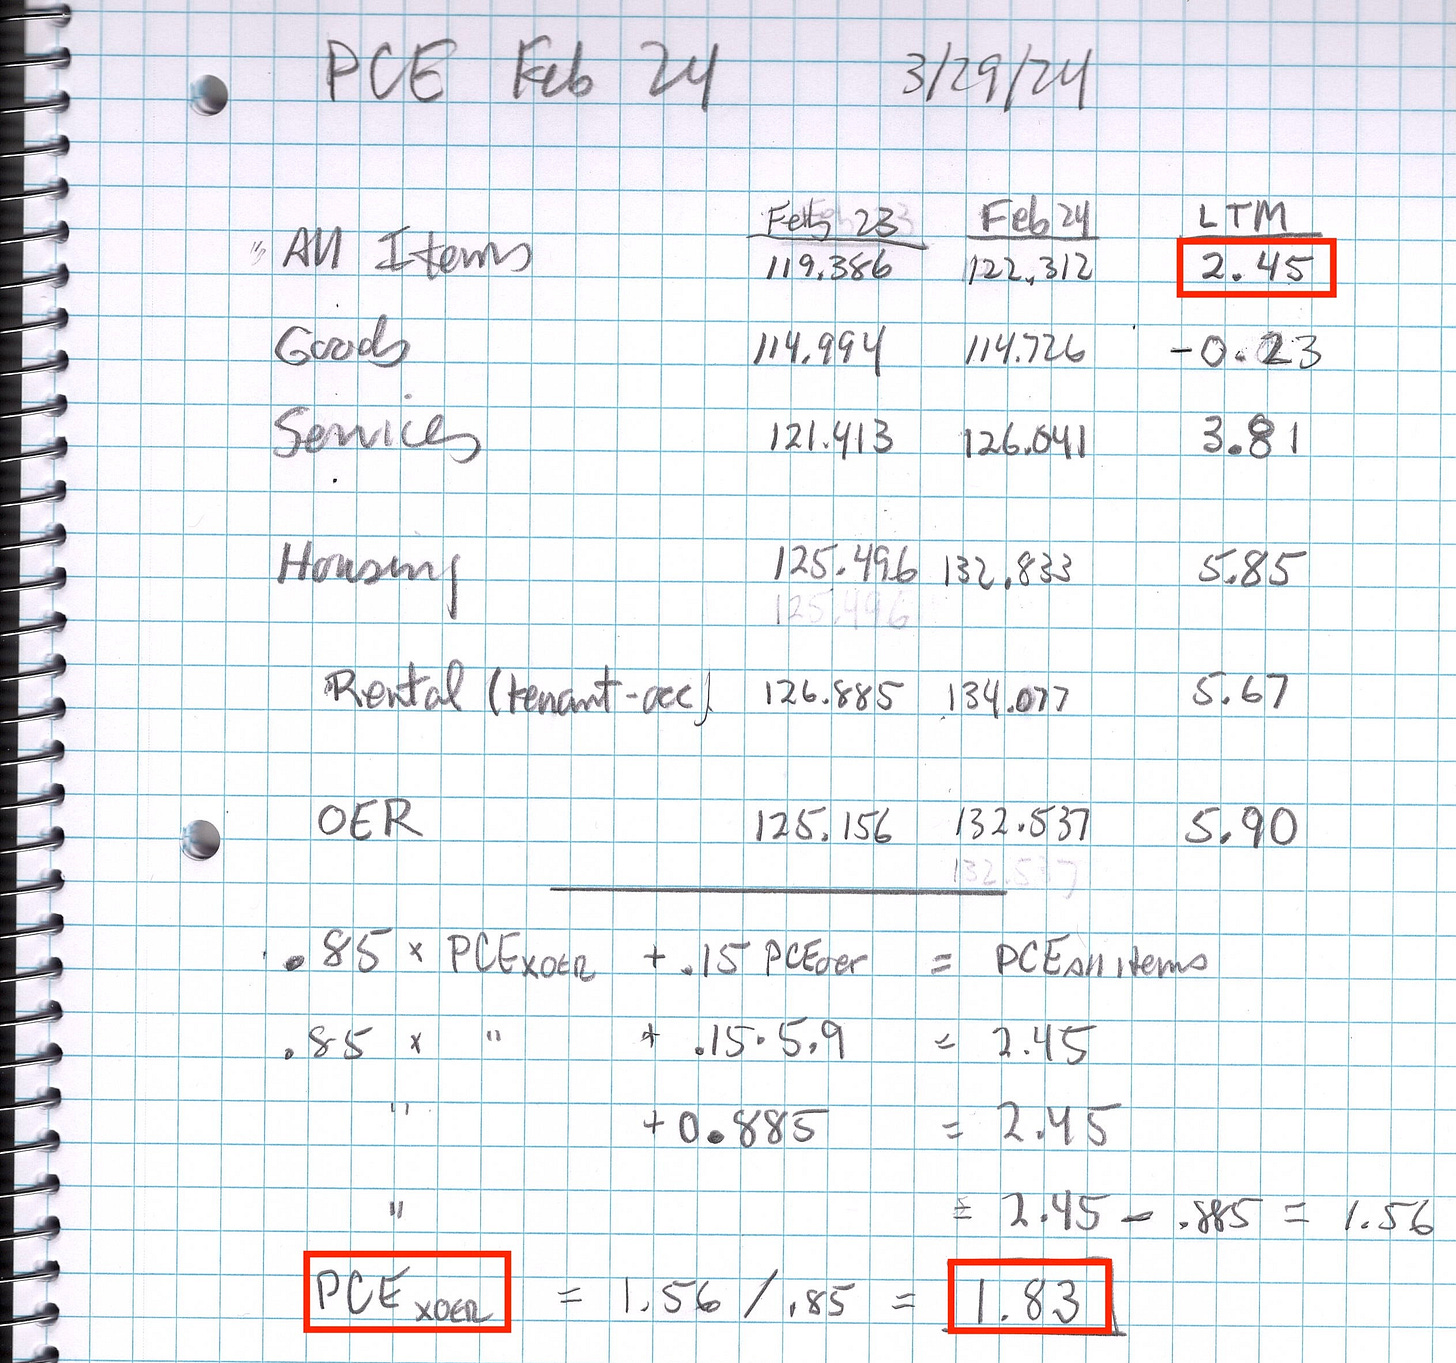 PCE Feb 24 3/29/24
Feb 23 Feb 24 LTM
" All Items 119.386 122.312 2.45
Goods 114.994 114.726 -0.23
Services 121.413 126.041 3.81
Housing 125.496 132.833 5.85
125.496
Rental (tenant-occ) 126.885 134.077 5.67
OER 125.156 132.537 5.90
132.537
.85 × PCE XOER + .15 PCE oer = PCE All items
.85 × " + .15·5.9 = 2.45
" + 0.885 = 2.45
" = 2.45 - .885 = 1.56
PCE XOER = 1.56 / .85 = 1.83